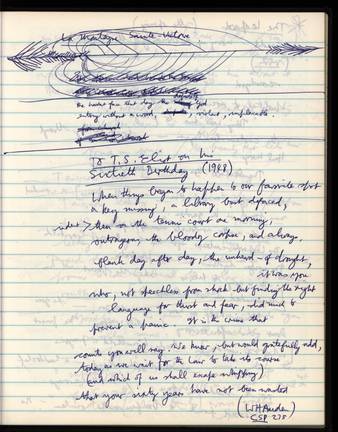 La Montagne Sainte-Victoire
the hunter from that day the god
entry without a word, violent, implacable.
To T.S. Eliot on his
Sixtieth Birthday. (1948)
When things began to happen to our favourite spot
a key missing, a library bust defaced,
then on the tennis court one morning,
outrageous, the bloody corpse, and always,
blank day after day, the unheard-of drought,
it was you
who, not speechless from shock but finding the right
language for thirst and fear, did much to
prevent a panic. It is the crime that
counts, you will say. We know, but would gratefully add,
today as we wait for the Law to take its course
(and which of us shall escape whipping)
that your sixty years have not been wasted
(WH Auden)
CSP 275